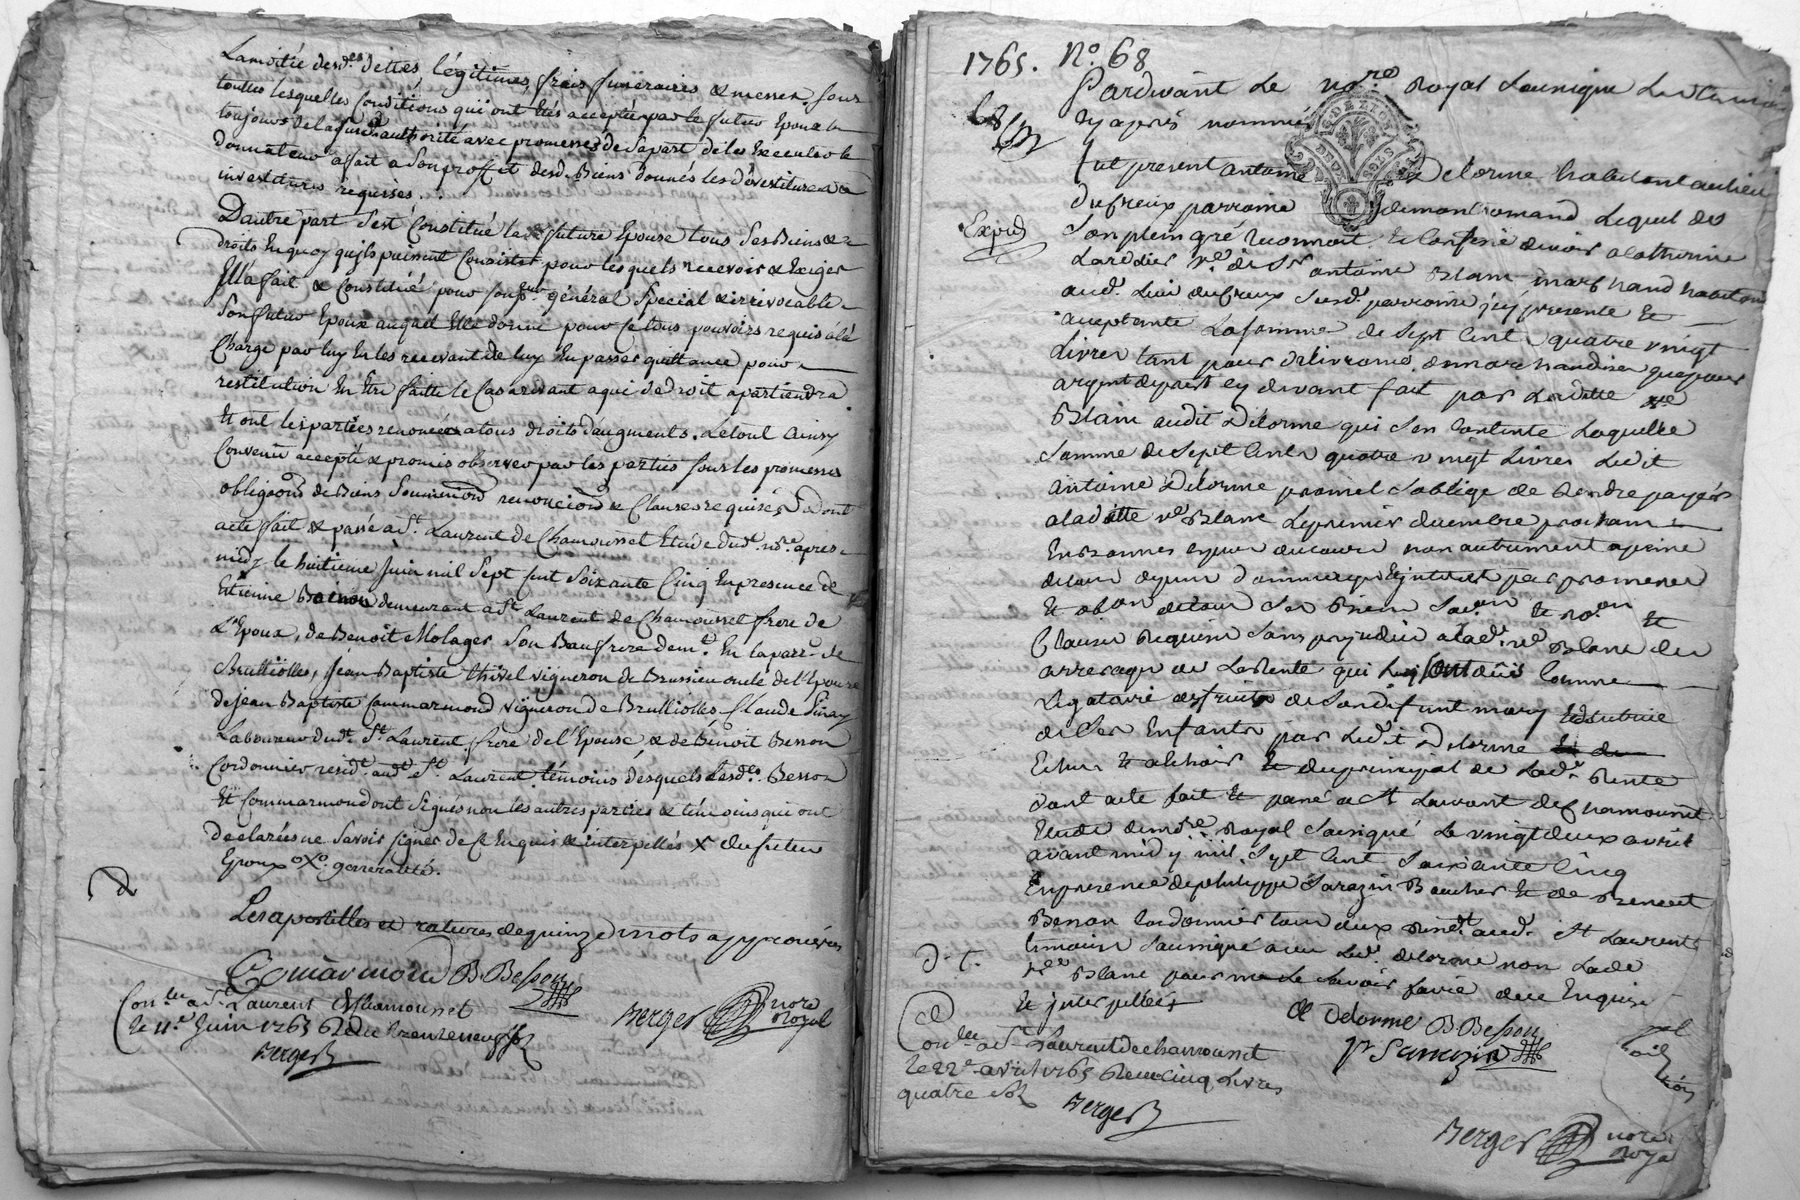 La moitié desd.es dettes légitimes, frais funéraires & messes. sous
touttes lesquelles conditions qui ont étés acceptées par le futur Epoux
toujours de lad. authorité avec promesses de sa part de les Executer le
donnateur a fait a son proffit desd. Biens donnés les dévestitures &
investitures requises.
D'autre part s'est Constitué la future Epouse tous ses Biens &
droits En quoy qu'ils puissent Consister pour lesquels recevoir & Exiger
Elle a fait & Constitué pour son pr.eur général Special & irrévocable
Son futur Epoux auquel Elle donne pour ce tous pouvoirs requis a la
Charge par luy En les recevant de luy En passer quittance pour
restitution En Etre faitte le Cas arrivant a qui de droit apartiendra
Et ont les parties renoncé a tous droits d'augments. Le tout Ainsy
Convenu accepté & promis observer par les parties sous les promesses
obligaons de Biens Soumissions renonciaons & Clauses requises Dont
acte fait & passé a St. Laurent de Chamousset Etude dud. no.re apres
midy le huitieme Juin mil Sept cent Soixante Cinq En presence de
Etienne demeurant a St. Laurent de Chamousset frere de
L'Epoux, de Benoit Molager Son Baufrere dem.t En la parr.e de
Brulliolles, Jean Baptiste thivel vigneron de Brussieu oncle de l'Epouse
de jean Baptiste Commarmond vigneron de Brulliolles Claude
Laboureur dud. St. Laurent frere de l'Epouse, & de Benoit Besson
Cordonnier resid.t aud. St. Laurent témoins desquels lesd. Besson
Et Commarmond ont signés non les autres parties & témoins qui ont
declarés ne Savoir signer de ce Enquis & interpellés X du futur
Epoux X généralité.
Les apostilles et ratures de quinze mots approuvées
Comarmond B Besson
Con.lé a St Laurent de Chamousset
le 11.e Juin 1765 Reçu trente neuf s
Berger
Berger no.re Royal
1765. N.o 68
Pardevant Le no.re Royal Soussigné
cy après nommés
Expéd
fut present antoine Delorme habitant au lieu
Dufreux parroisse de montromand Lequel de
Son plein gré reconnoit & Confesse devoir a Catherine
v.e de Sr antoine Blanc marchand habitant
aud. Lieu dufreux Susd. parroisse icy presente Et
acceptante La somme de Sept Cent quatre vingt
Livres tant pour delivrance de marchandises que pour
argent depuis cy devant fait par Laditte v.e
Blanc audit Delorme qui s'en Contente Laquelle
Somme de Sept Cent quatre vingt Livres Ledit
antoine Delorme promet s'oblige de Rendre payer
a laditte v.e Blanc Le premier decembre prochain
En Bonnes especes de cours non autrement a peine
de tous depens dommages & interests par promesse
Et obl.on de tous Ses Biens Et
Clauses Requises Sans prejudice a lad. v.e Blanc des
arrerages de La Rente qui luy sont dûs comme
Legataire des fruits de Son defunt mary
de Ses Enfants par Led.t Delorme
Echus Et a echoir Et du principal de Lad. Rente
dont acte fait Et passé a St Laurent de Chamousset
Etude de no.re Royal Soussigné Le vingt deux avril
avant midy mil Sept Cent Soixante Cinq
En presence de philippe Sarazin Boucher Et de Benoit
Besson Cordonnier tous deux resid.t aud. St Laurent
temoins Soussignés avec Led. delorme non Lade
v.e Blanc pour ne Le Savoir faire de ce Enquise
Et interpellée
D. C.
A Delorme B Besson
P Sarrazin
Con.lé a St Laurent de chamousset
le 22.e avril 1765 Reçu cinq Livres
quatre s Berger
Berger no.re Royal